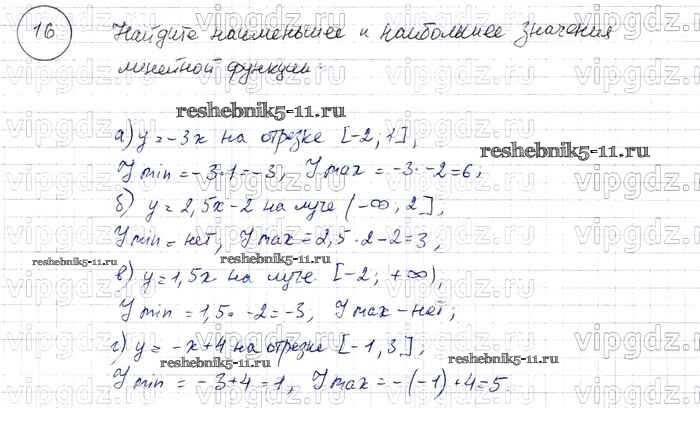 16
Найдите наименьшее и наибольшее значения
линейной функции:
reshebnik5-11.ru
а) y = -3x на отрезке [-2; 1];
reshebnik5-11.ru
y min = -3·1 = -3, y max = -3·-2 = 6;
б) y = 2,5x - 2 на луче (-∞, 2];
y min = нет, y max = 2,5·2-2 = 3,
reshebnik5-11.ru
reshebnik5-11.ru
в) y = 1,5x на луче [-2; +∞),
y min = 1,5·-2 = -3, y max - нет;
г) y = -x+4 на отрезке [-1, 3];
reshebnik5-11.ru
reshebnik5-11.ru
y min = -3+4 = 1, y max = -(-1)+4 = 5.
vipgdz.ru